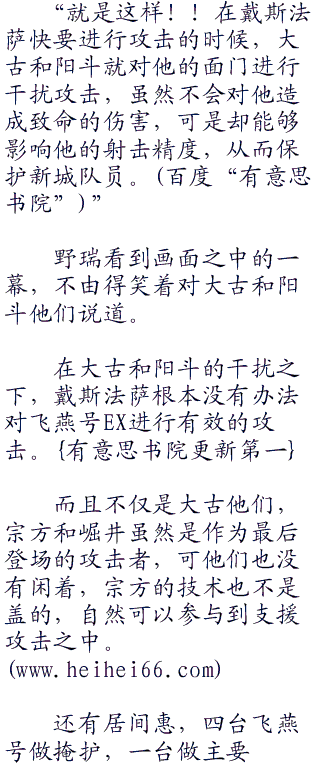 “就是这样！！在戴斯法
萨快要进行攻击的时候，大
古和阳斗就对他的面门进行
干扰攻击，虽然不会对他造
成致命的伤害，可是却能够
影响他的射击精度，从而保
护新城队员。(百度“有意思
书院”)”
野瑞看到画面之中的一
幕，不由得笑着对大古和阳
斗他们说道。
在大古和阳斗的干扰之
下，戴斯法萨根本没有办法
对飞燕号EX进行有效的攻
击。{有意思书院更新第一}
而且不仅是大古他们，
宗方和崛井虽然是作为最后
登场的攻击者，可他们也没
有闲着，宗方的技术也不是
盖的，自然可以参与到支援
攻击之中。
(www.heihei66.com)
还有居间惠，四台飞燕
号做掩护，一台做主要